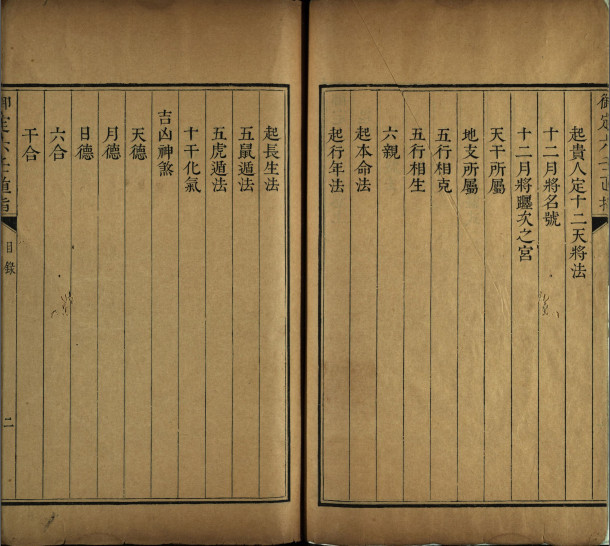 御定六壬直指
起貴人定十二天將法
十二月將名號
十二月將躔次之宮
天干所屬
地支所屬
五行相克
五行相生
六親
起本命法
起行年法
起長生法
五鼠遁法
五虎遁法
十干化氣
吉凶神煞
天德
月德
日德
六合
干合
御定六壬直指
目錄
二